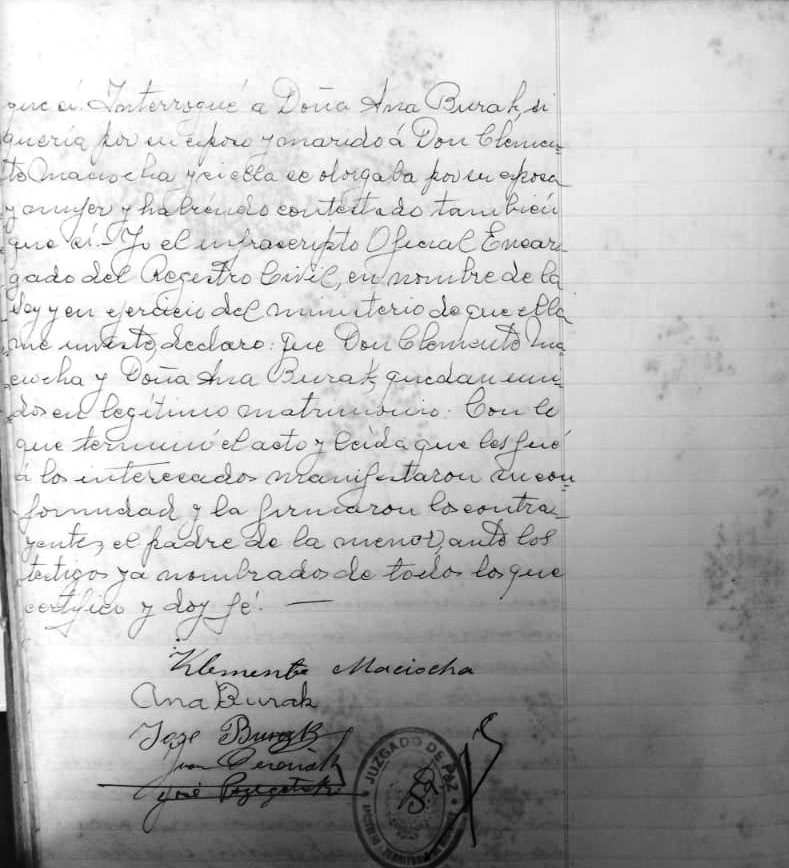 que sí. Interrogué a Doña Ana Burak, si
quería por su esposo y marido á Don Clemen-
to Maciocha y si ella se otorgaba por su esposa
y mujer y habiendo contestado también
que sí.- Yo el infrascripto Oficial Encar-
gado del Registro Civil, en nombre de la
Ley y en ejercicio del ministerio de que ella
me inviste, declaro: que Don Clemento Ma-
ciocha y Doña Ana Burak, quedan uni-
dos en legítimo matrimonio. Con lo
que terminó el acto y leída que les fué
á los interesados manifestaron su con-
formidad y la firmaron los contra-
yentes, el padre de la menor, ante los
testigos ya nombrados de todos los que
certifico y doy fé. —
Klemente Maciocha
Ana Burak
Joze Burak
Juan
José
JUZGADO DE PAZ
59